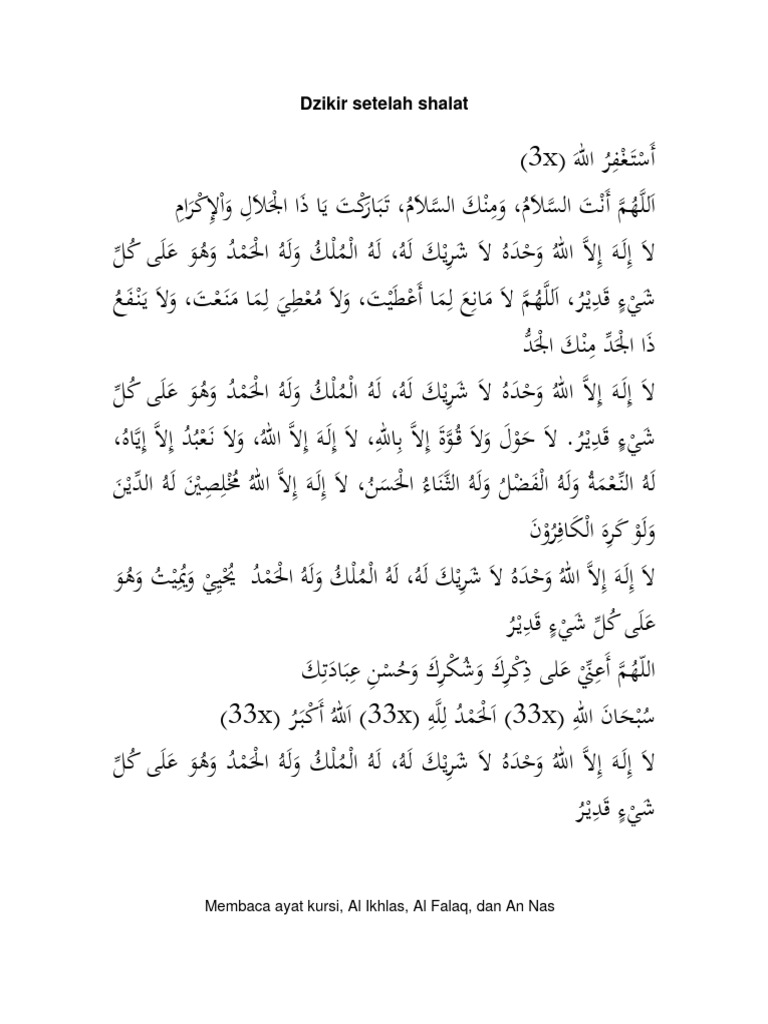 Dzikir setelah shalat
أَسْتَغْفِرُ اللهَ (3x)
اَللَّهُمَّ أَنْتَ السَّلاَمُ، وَمِنْكَ السَّلاَمُ، تَبَارَكْتَ يَا ذَا الْجَلاَلِ وَاْلإِكْرَامِ
لاَ إِلَهَ إِلاَّ اللهُ وَحْدَهُ لاَ شَرِيْكَ لَهُ، لَهُ الْمُلْكُ وَلَهُ الْحَمْدُ وَهُوَ عَلَى كُلِّ
شَيْءٍ قَدِيْرُ، اَللَّهُمَّ لاَ مَانِعَ لِمَا أَعْطَيْتَ، وَلاَ مُعْطِيَ لِمَا مَنَعْتَ، وَلاَ يَنْفَعُ
ذَا الْجَدِّ مِنْكَ الْجَدُّ
لاَ إِلَهَ إِلاَّ اللهُ وَحْدَهُ لاَ شَرِيْكَ لَهُ، لَهُ الْمُلْكُ وَلَهُ الْحَمْدُ وَهُوَ عَلَى كُلِّ
شَيْءٍ قَدِيْرُ. لاَ حَوْلَ وَلاَ قُوَّةَ إِلاَّ بِاللهِ، لاَ إِلَهَ إِلاَّ اللهُ، وَلاَ نَعْبُدُ إِلاَّ إِيَّاهُ،
لَهُ النِّعْمَةُ وَلَهُ الْفَضْلُ وَلَهُ الثَّنَاءُ الْحَسَنُ، لاَ إِلَهَ إِلاَّ اللهُ مُخْلِصِيْنَ لَهُ الدِّيْنَ
وَلَوْ كَرِهَ الْكَافِرُوْنَ
لاَ إِلَهَ إِلاَّ اللهُ وَحْدَهُ لاَ شَرِيْكَ لَهُ، لَهُ الْمُلْكُ وَلَهُ الْحَمْدُ يُحْيِيْ وَيُمِيْتُ وَهُوَ
عَلَى كُلِّ شَيْءٍ قَدِيْرُ
اللّهُمَّ أَعِنِّيْ عَلى ذِكْرِكَ وَشُكْرِكَ وَحُسْنِ عِبَادَتِكَ
سُبْحَانَ اللهِ (33x) اَلْحَمْدُ لِلَّهِ (33x) اَللهُ أَكْبَرُ (33x)
لاَ إِلَهَ إِلاَّ اللهُ وَحْدَهُ لاَ شَرِيْكَ لَهُ، لَهُ الْمُلْكُ وَلَهُ الْحَمْدُ وَهُوَ عَلَى كُلِّ
شَيْءٍ قَدِيْرُ
Membaca ayat kursi, Al Ikhlas, Al Falaq, dan An Nas